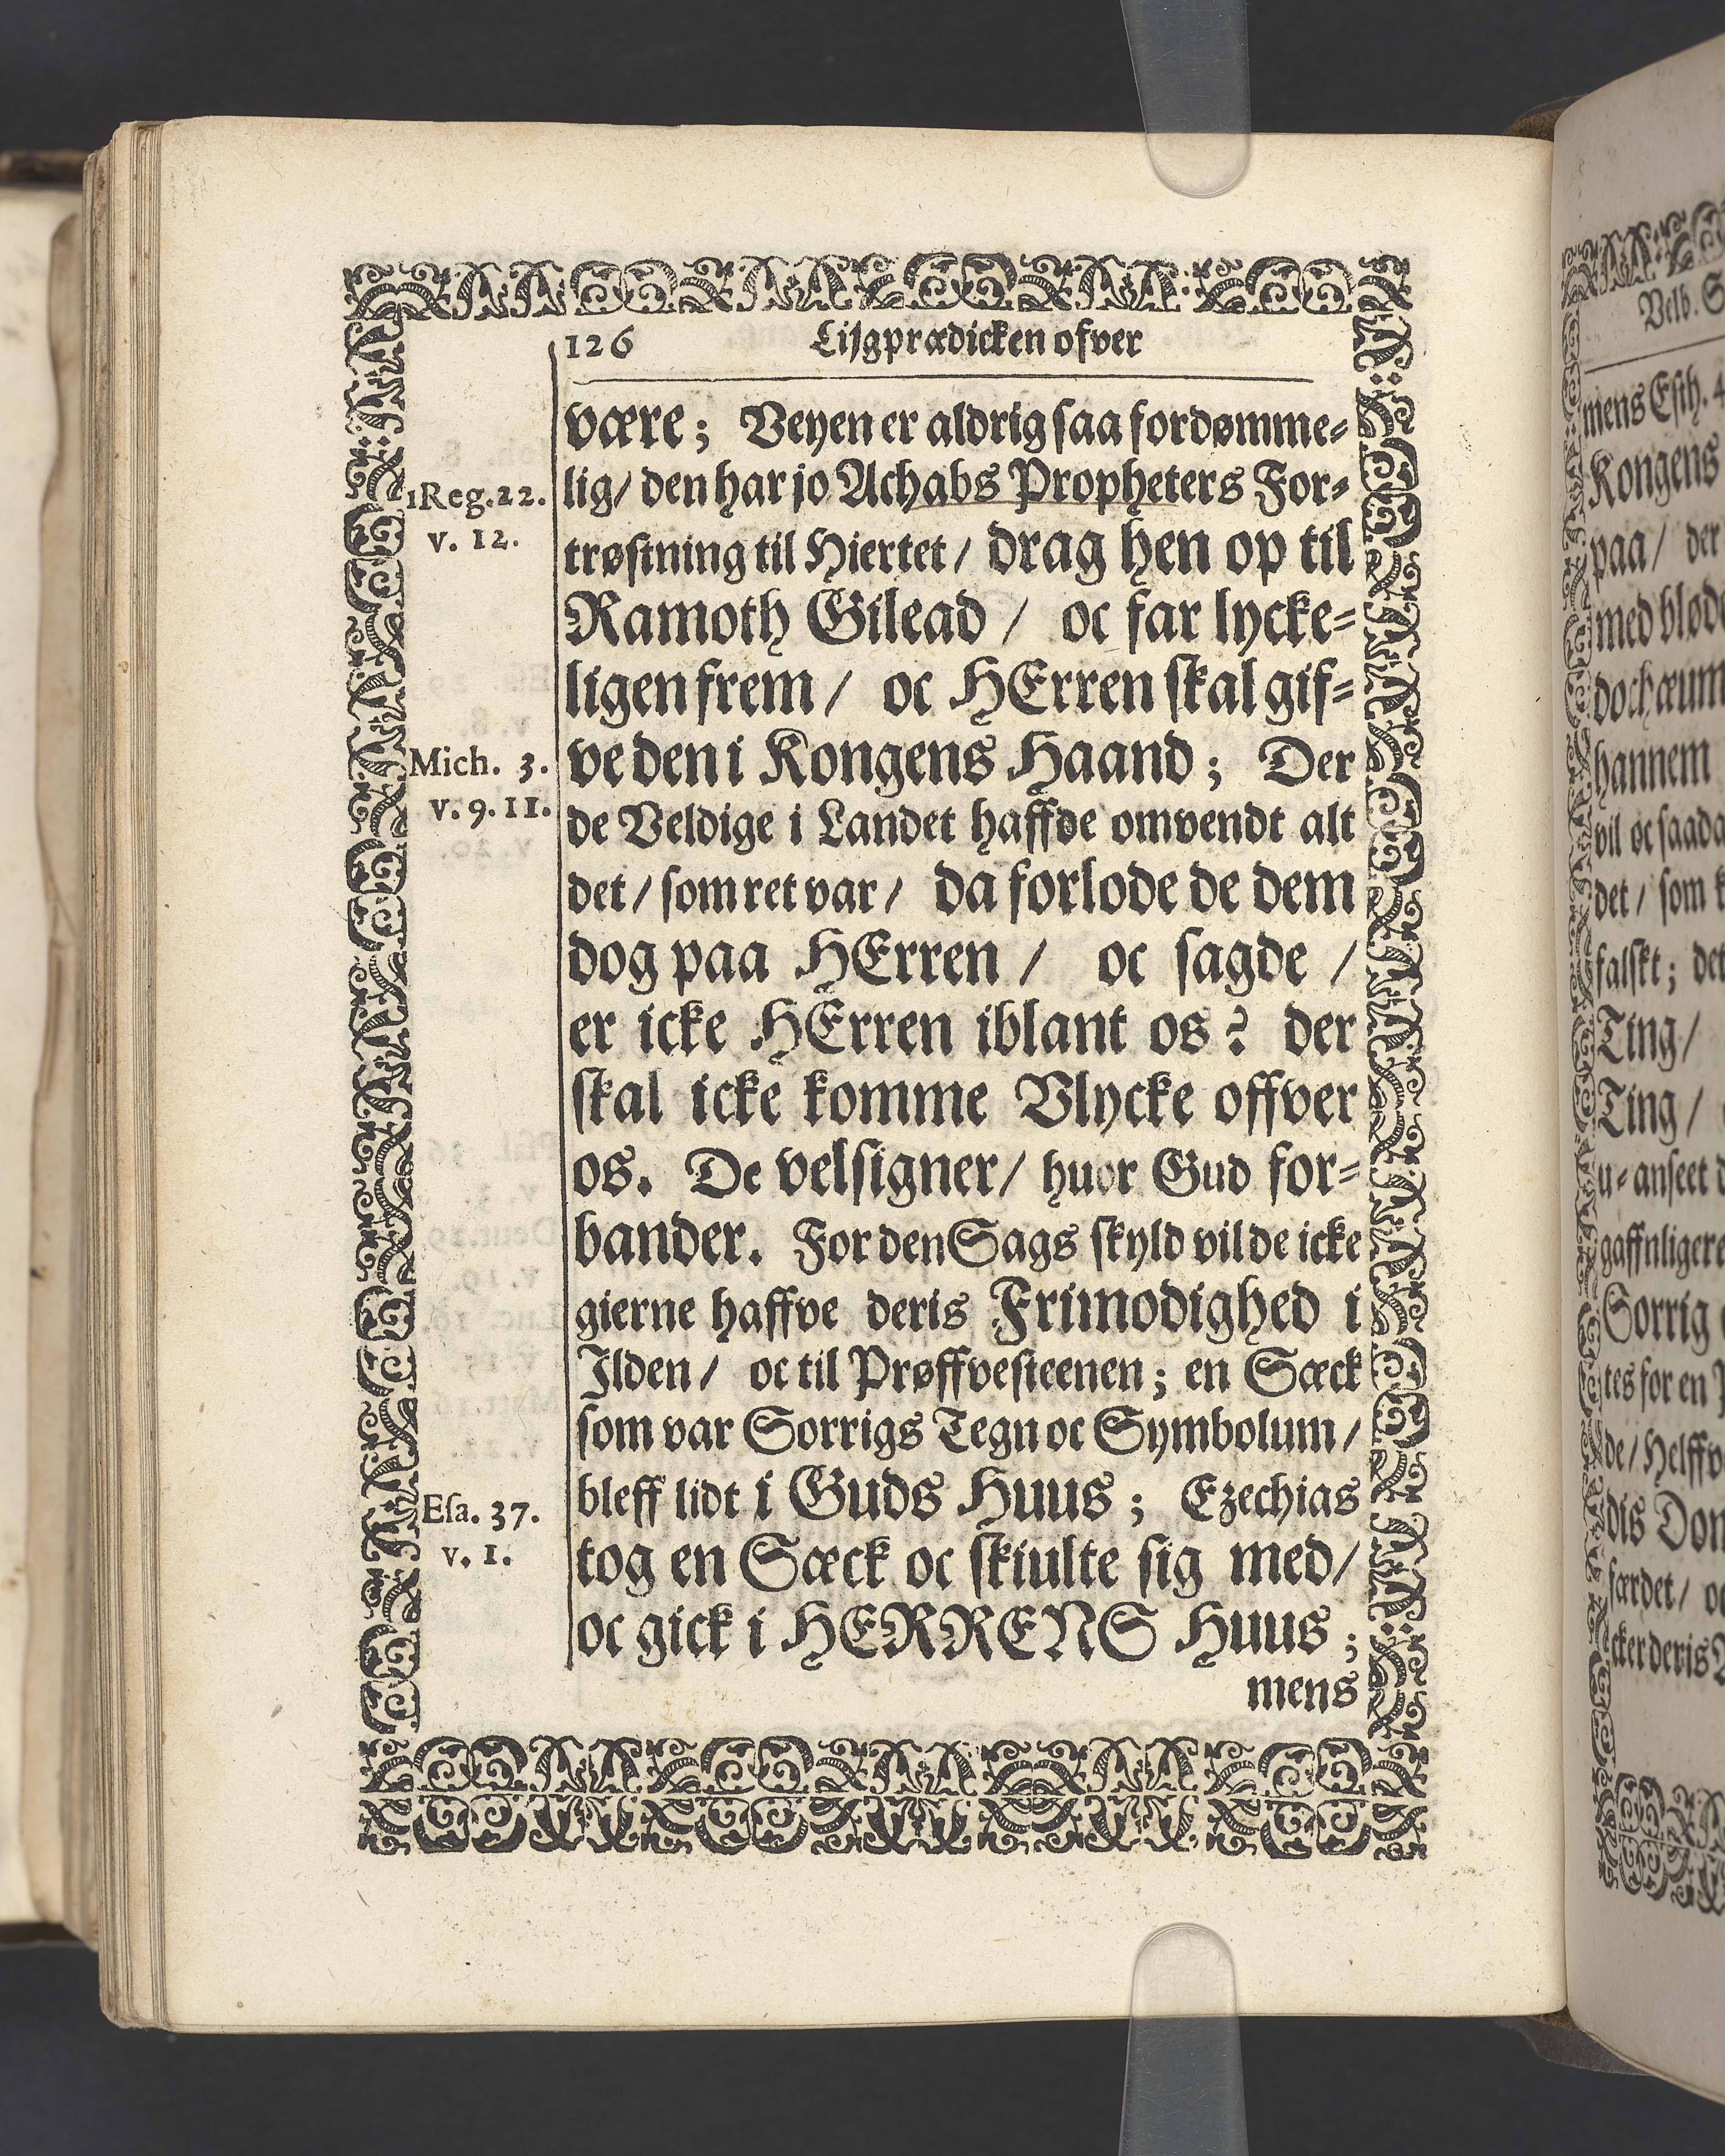 126 Lijgprædicken ofver
være; Veyen er aldrig saa fordømme-
lig/ den har jo Achabs Propheters For-
trøstning til Hiertet/ drag hen op til
Ramoth Gilead / oc far lycke-
ligen frem / oc HErren skal gif-
ve den i Kongens Haand; Der
de Veldige i Landet haffde omvendt alt
det/ som ret var/ da forlode de dem
dog paa HErren / oc sagde /
er icke HErren iblant os? der
skal icke komme Vlycke offver
os. De velsigner/ huor Gud for-
bander. For den Sags skyld vilde icke
gierne haffve deris Frimodighed i
Ilden/ oc til Prøffvesteenen; en Sæck
som var Sorrigs Tegn oc Symbolum/
bleff lidt i Guds Huus; Ezechias
tog en Sæck oc skiulte sig med/
oc gick i HERRENS Huus;
mens
1Reg.22.
v. 12.
Mich. 3.
v. 9. 11.
Esa. 37.
v. 1.
Velb.
mens Esth. 4
Kongens
paa/ der
med
hannem
vil oc
det/ som
falskt; det
Ting/
Ting/
u-anseet
gaffnligere
Sorrig
tes for en
de/
dis
færdet/
cker deris